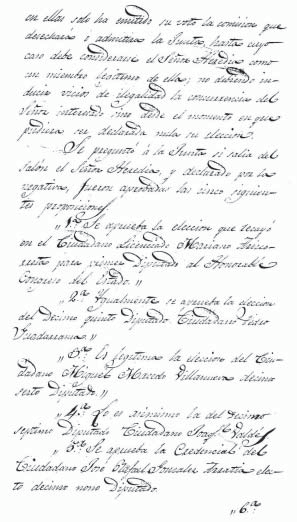 en ellas solo ha emitido su voto la comision que
desechará ó admitirá la Junta, hasta cuyo
caso debe considerarse el Señor Heredia como
un miembro legitimo de ella; no debiendo in-
ducir vicios de ilegalidad la concurrencia del
Señor interesado sino desde el momento en que
pudiera ser declarada nula su eleccion.
Se preguntó á la Junta si salia del
salon el Señor Heredia, y declarado por la
negativa, fueron aprobadas las cinco siguien-
tes proposiciones.
„1.ª Se aprueba la eleccion que recayó
en el Ciudadano Licenciado Mariano
para primer Diputado al Honorable
Congreso del Estado.„
„2.ª Igualmente se aprueba la eleccion
del Decimo quinto Diputado Ciudadano Isidro
„3.ª Es legitima la eleccion del Ciu-
dadano Miguel Macedo Villanueva decimo
sesto Diputado.„
„4.ª Lo es asimismo la del decimo
septimo Diputado Ciudadano Joaq.ⁿ Valdés
„5.ª Se aprueba la Credencial del
Ciudadano José Rafael Gonzalez elec-
to decimo nono Diputado.
„6.ª